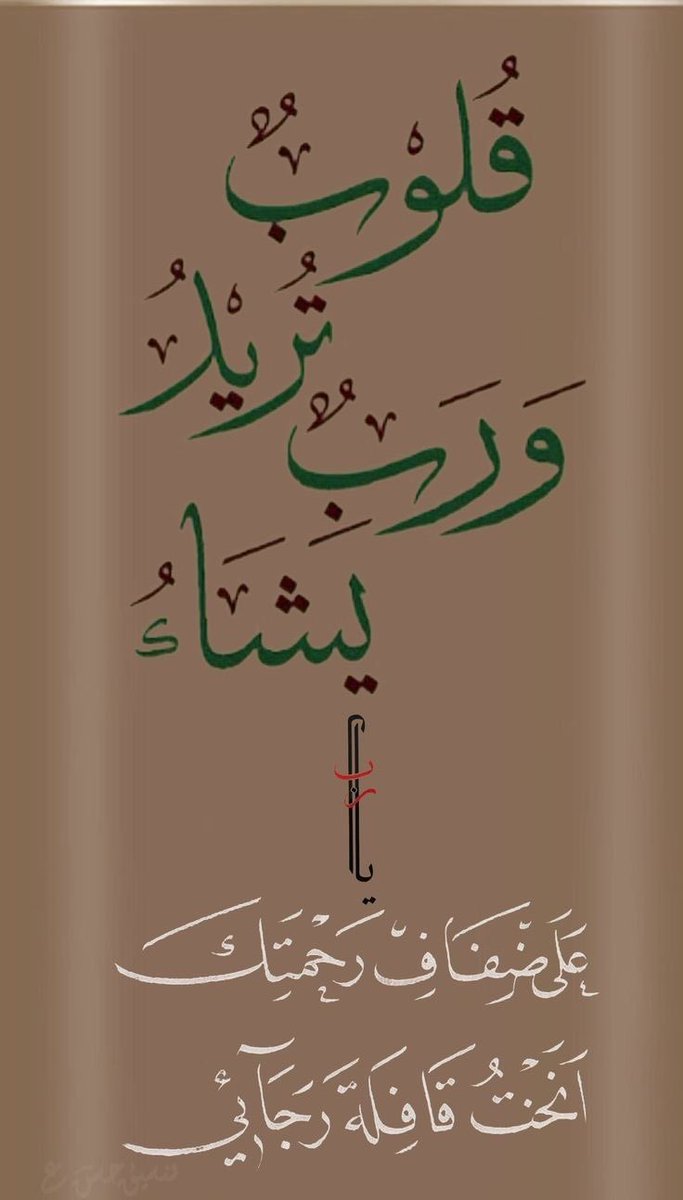 قُلُوْبٌ
تُرِيْدُ
وَرَبٌ
يَشَاءُ
يا رب
عَلَى ضِّفَافِّ رَحْمَتِكَ
اَنَخْتُ قَافِلَةَ رَجَآئِي